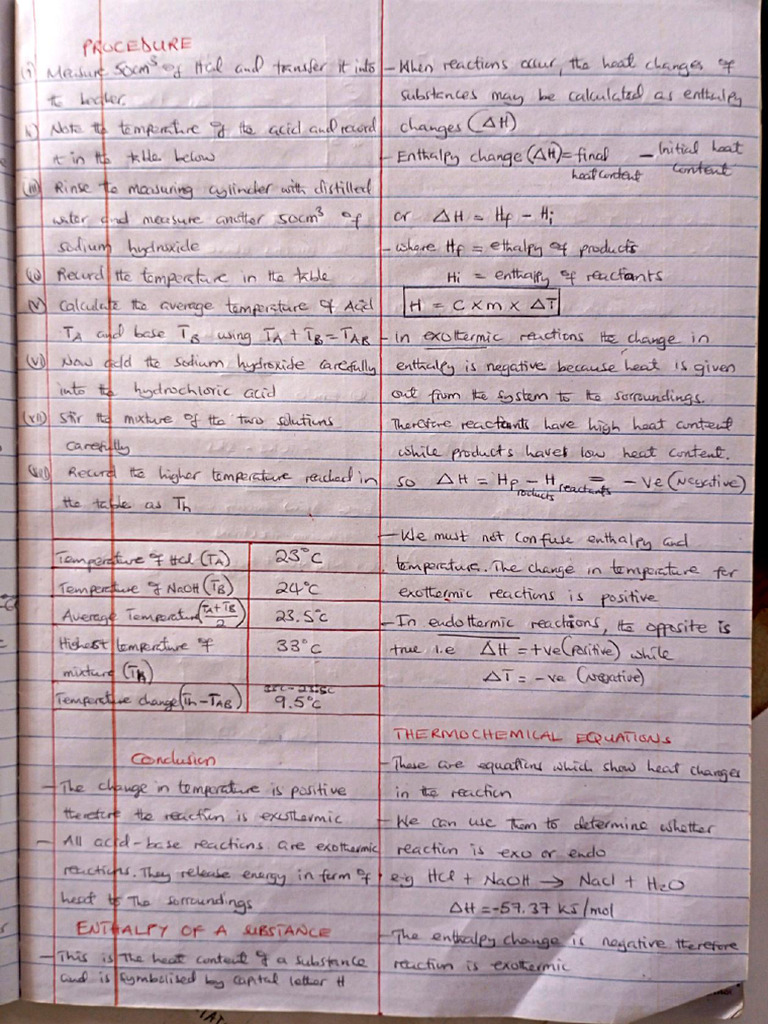 PROCEDURE
(i) Measure 50cm³ of Hcl and transfer it into
to beaker.
ii) Note the temperature of the acid and record
it in the table below
(iii) Rinse the measuring cylinder with distilled
water and measure another 50cm³ of
sodium hydroxide
(iv) Record the temperature in the table
(v) Calculate the average temperature of Acid
TA and base TB using TA + TB = TAB
(vi) Now add the sodium hydroxide carefully
into the hydrochloric acid
(vii) Stir the mixture of the two solutions
carefully
(viii) Record the higher temperature reached in
the table as Th
Temperature of Hcl (TA) 23°C
Temperature of NaOH (TB) 24°C
Average Temperature (TA+TB/2) 23.5°C
Highest temperature of 33°C
mixture (Th)
Temperature change (Th - TAB) 9.5°C
Conclusion
- The change in temperature is positive
therefore the reaction is exothermic
- All acid-base reactions are exothermic
reactions. They release energy in form of
heat to The sorroundings
ENTHALPY OF A SUBSTANCE
- This is the heat content of a substance
and is symbolised by capital letter H
- When reactions occur, the heat changes of
substances may be calculated as enthalpy
changes (ΔH)
- Enthalpy change (ΔH) = final heat content - Initial heat content
or ΔH = Hf - Hi
- where Hf = ethalpy of products
Hi = enthalpy of reactants
H = C x m x ΔT
- In exothermic reactions the change in
enthalpy is negative because heat is given
out from the system to the sorroundings.
Therefore reactants have high heat content
while products have low heat content.
so ΔH = H products - H reactants = -ve (Negative)
- We must not confuse enthalpy and
temperature. The change in temperature for
exothermic reactions is positive
- In endothermic reactions, the opposite is
true i.e ΔH = +ve (Positive) while
ΔT = -ve (negative)
THERMOCHEMICAL EQUATIONS
- These are equations which show heat changes
in the reaction
- We can use them to determine whether
reaction is exo or endo
e.g Hcl + NaOH → Nacl + H2O
ΔH = -57.37 kJ/mol
- The enthalpy change is negative therefore
reaction is exothermic